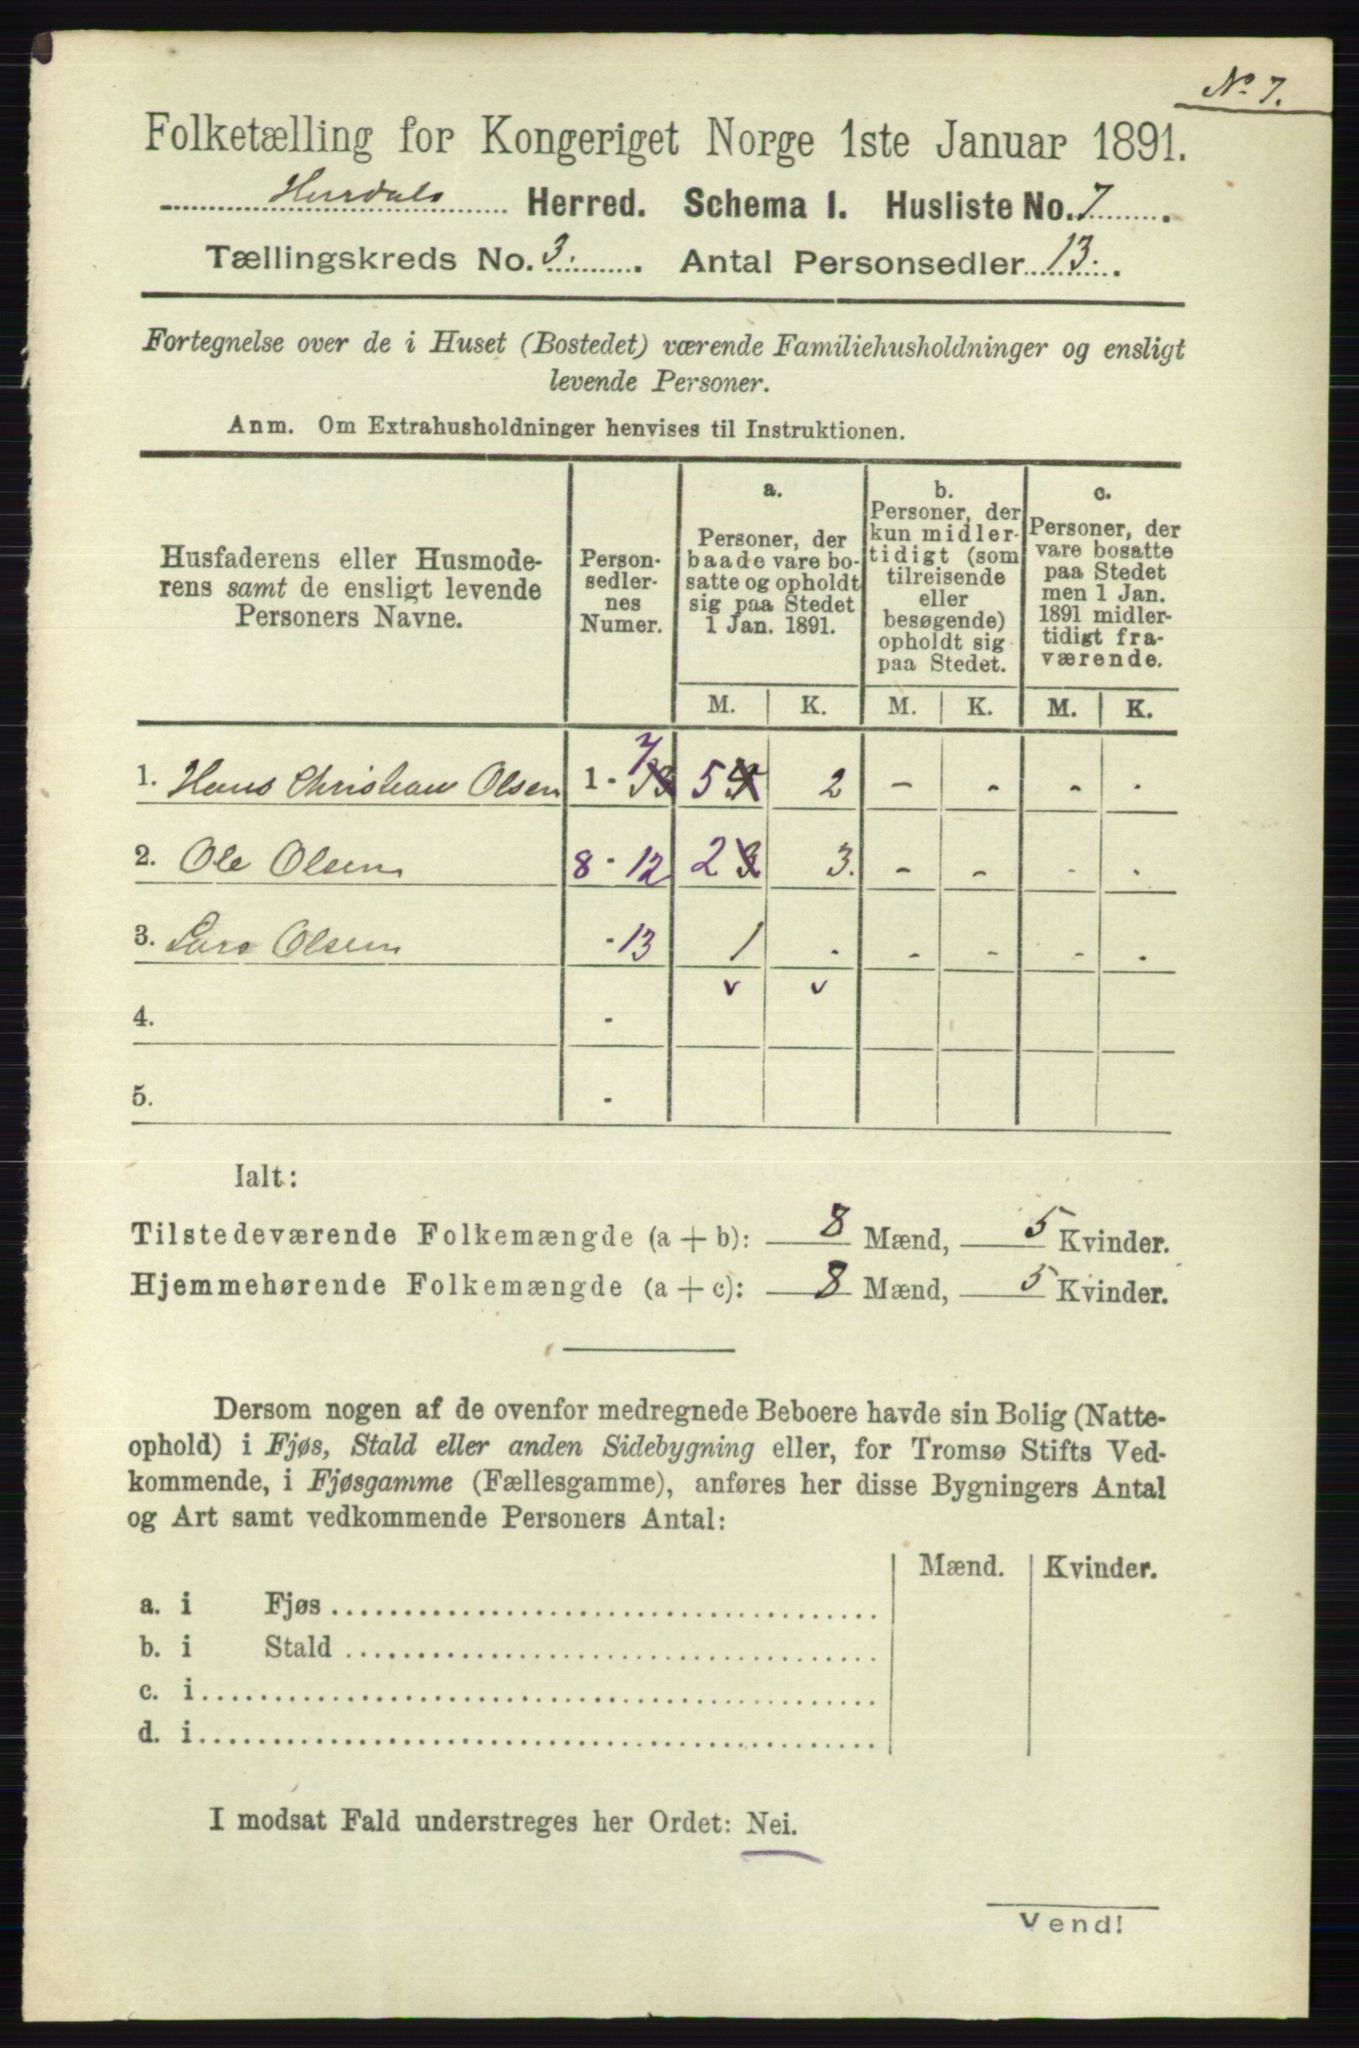 No 7.
Folketælling for Kongeriget Norge 1ste Januar 1891.
Hurdals Herred. Schema I. Husliste No. 7.
Tællingskreds No. 3. Antal Personsedler 13.
Fortegnelse over de i Huset (Bostedet) værende Familiehusholdninger og ensligt
levende Personer.
Anm. Om Extrahusholdninger henvises til Instruktionen.
Husfaderens eller Husmode-
rens samt de ensligt levende
Personers Navne.
Person-
sedler-
nes
Numer.
a.
Personer, der
baade vare bo-
satte og opholdt
sig paa Stedet
1 Jan. 1891.
b.
Personer, der
kun midler-
tidigt (som
tilreisende
eller
besøgende)
opholdt sig
paa Stedet.
c.
Personer, der
vare bosatte
paa Stedet
men 1 Jan.
1891 midler-
tidigt fra-
værende.
M. K. M. K. M. K.
1. Hans Christian Olsen 1 - 7 5 2 - - - -
2. Ole Olsen 8 - 12 2 3. - - - -
3. Lars Olsen - 13 1 - - - - -
v v
4. -
5. -
Ialt:
Tilstedeværende Folkemængde (a + b): 8 Mænd, 5 Kvinder.
Hjemmehørende Folkemængde (a + c): 8 Mænd, 5 Kvinder.
Dersom nogen af de ovenfor medregnede Beboere havde sin Bolig (Natte-
ophold) i Fjøs, Stald eller anden Sidebygning eller, for Tromsø Stifts Ved-
kommende, i Fjøsgamme (Fællesgamme), anføres her disse Bygningers Antal
og Art samt vedkommende Personers Antal:
Mænd. Kvinder.
a. i Fjøs
b. i Stald
c. i
d. i
I modsat Fald understreges her Ordet: Nei.
Vend!